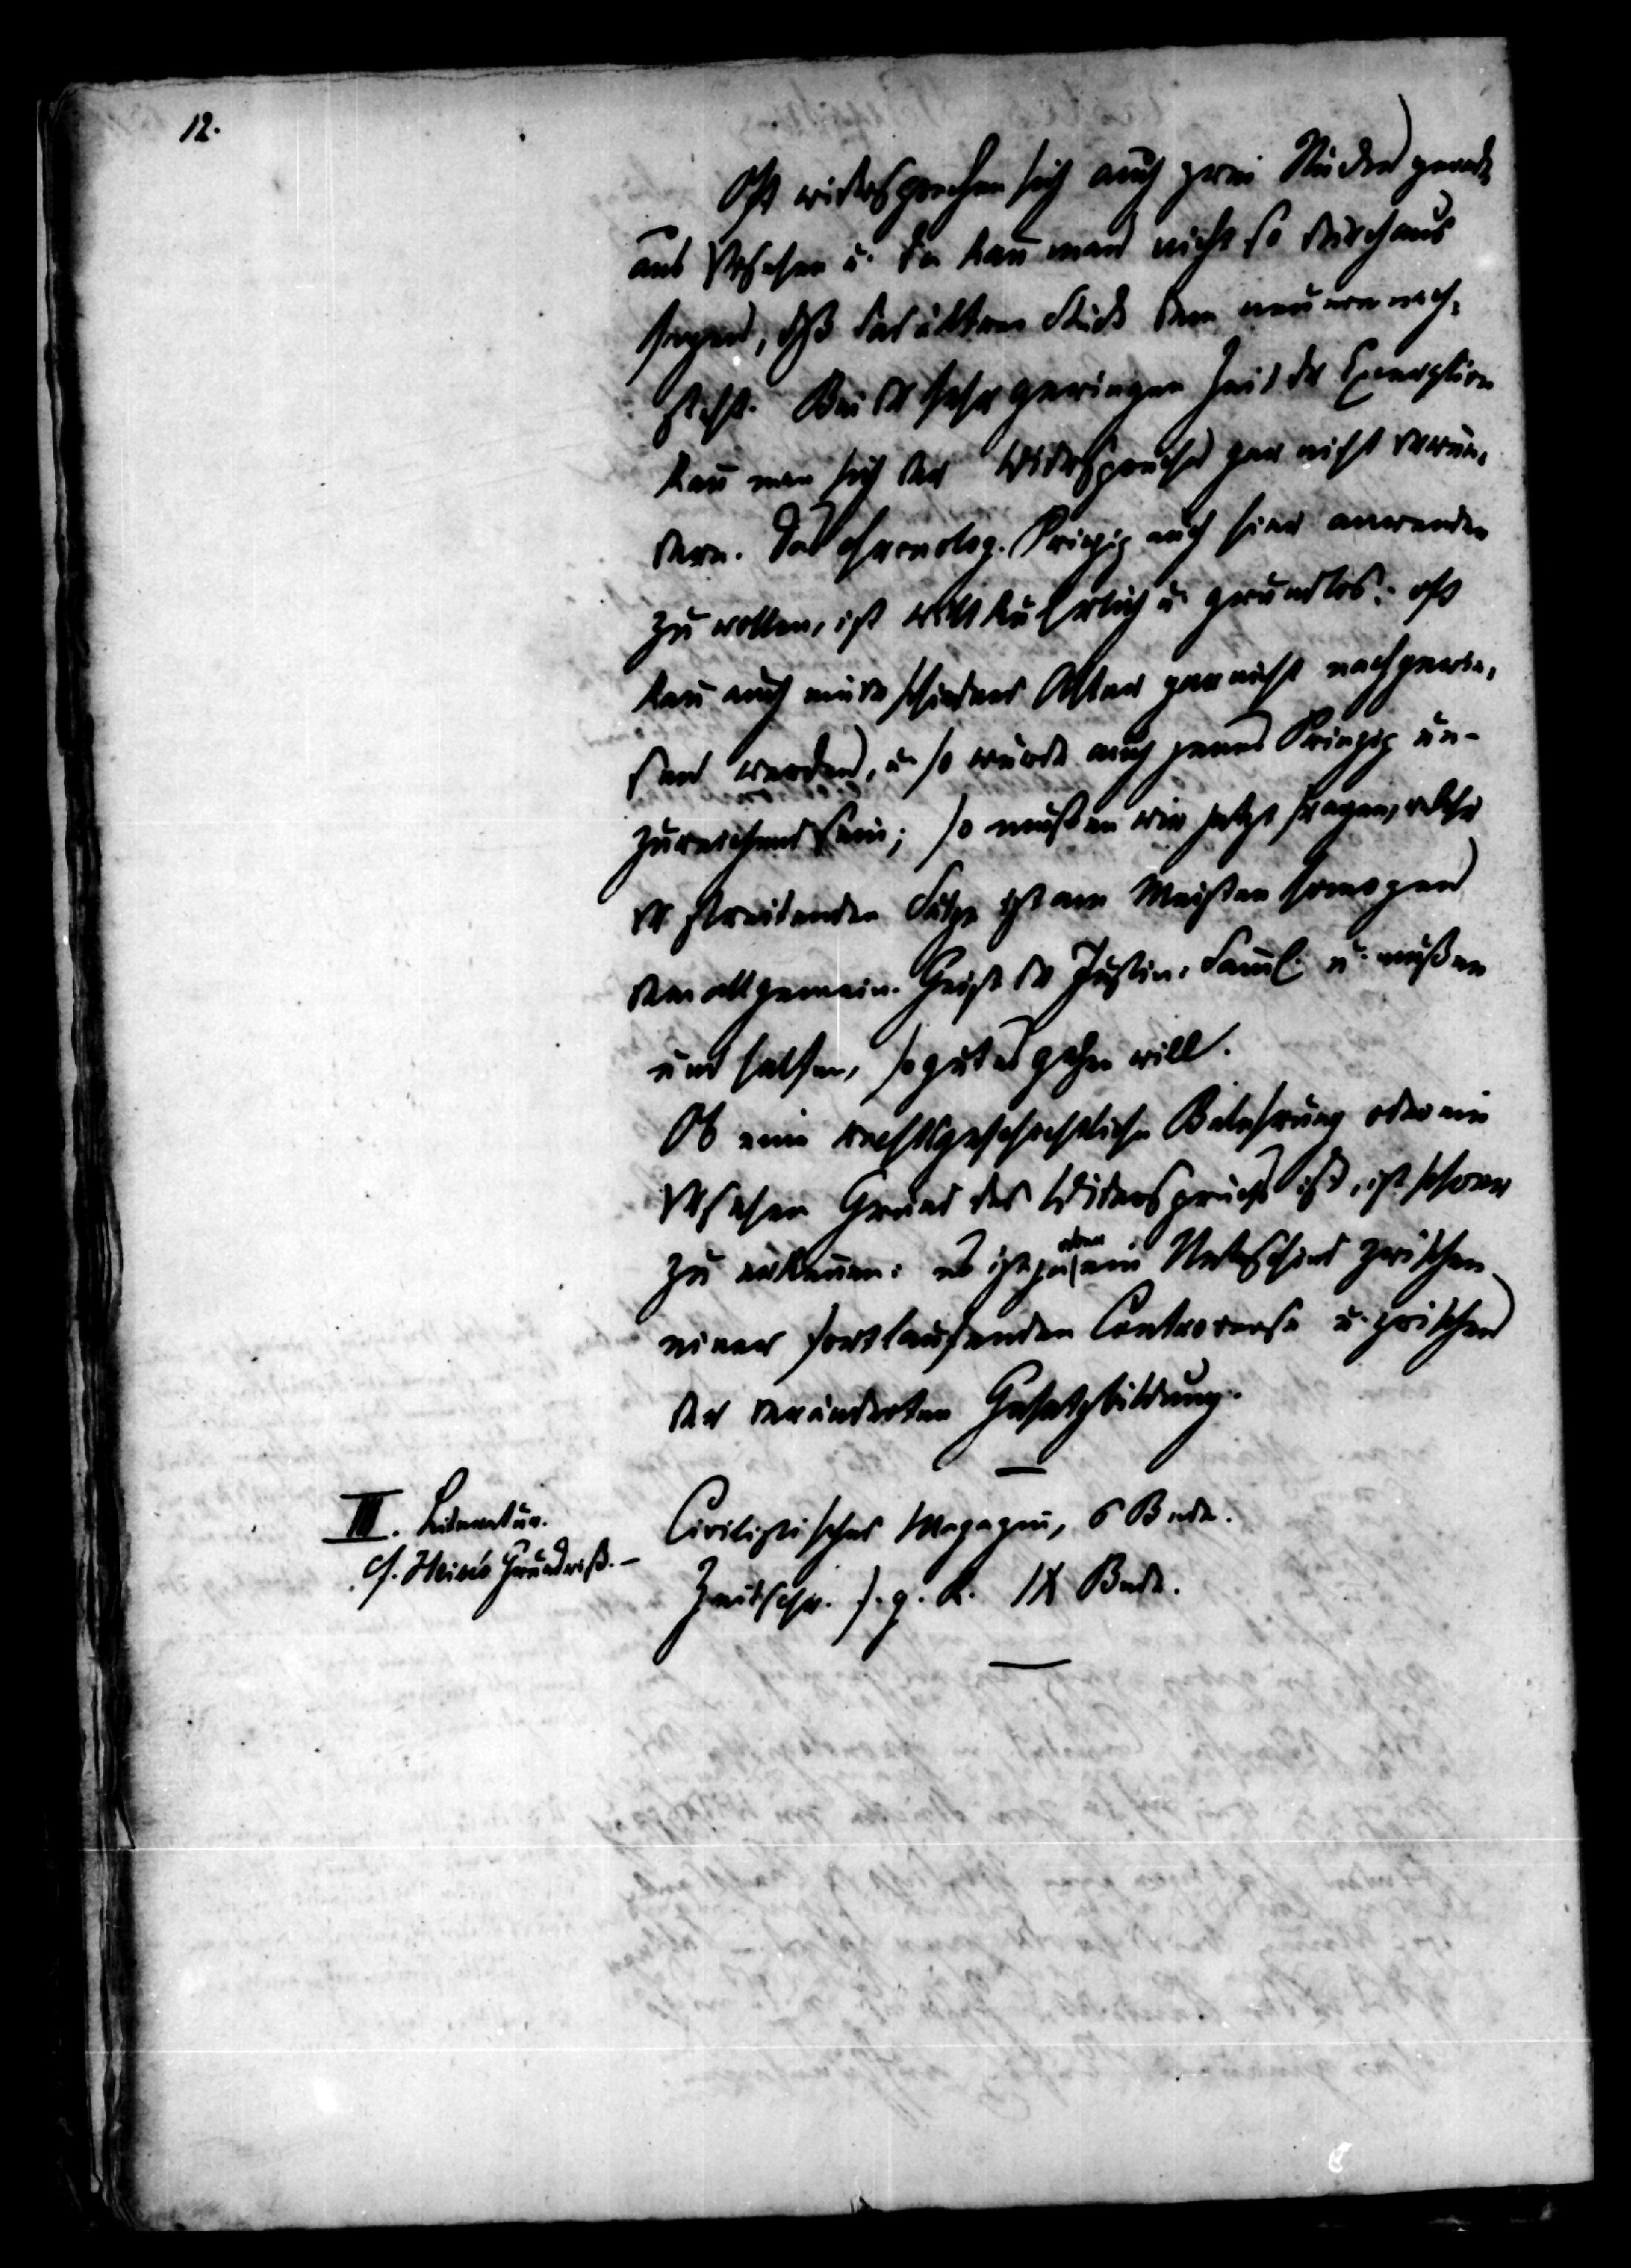 12.
Oft widersprechen sich auch zwei Stücke gerade
aus Versehen u. da kan̄ man nicht so durchaus
sagen, daß das ältere Stück dem neueren nach-
steht. Bei der sehr geringen Zeit der Excerption
kan̄ man sich der Widersprüche gar nicht verwun-
dern. Das chronolog. Prinzip auch hier anwenden
zu wollen, ist willkührlich u. grundlos: oft
kan̄ auch ein verschiednes Alter gar nicht nachgewie-
sen werden, u. so würde auch jenes Prinzip un-
zureichend sein; so mußen wir jetzt fragen, welcher
der streitenden Sätze ist am Meisten homogen
dem allgemein. Geist der Justin. Sam̄l. u. mußen
uns helfen, so gut es gehen will.
Ob eine rechtsgeschichtliche Belehrung oder ein
Versehen Grund des Widerspruchs ist, ist schwer
zu erkennen: es ist ja eben ein Unterschied zwischen
einer fortlaufenden Controverse u. zwischen
der veränderten Gesetzbildung.
III. Literatur.
cf. Heise's Grundriß. –
Civilistisches Magazin, 6 Bnde.
Zeitschr. f. g. R. IX Bnde.